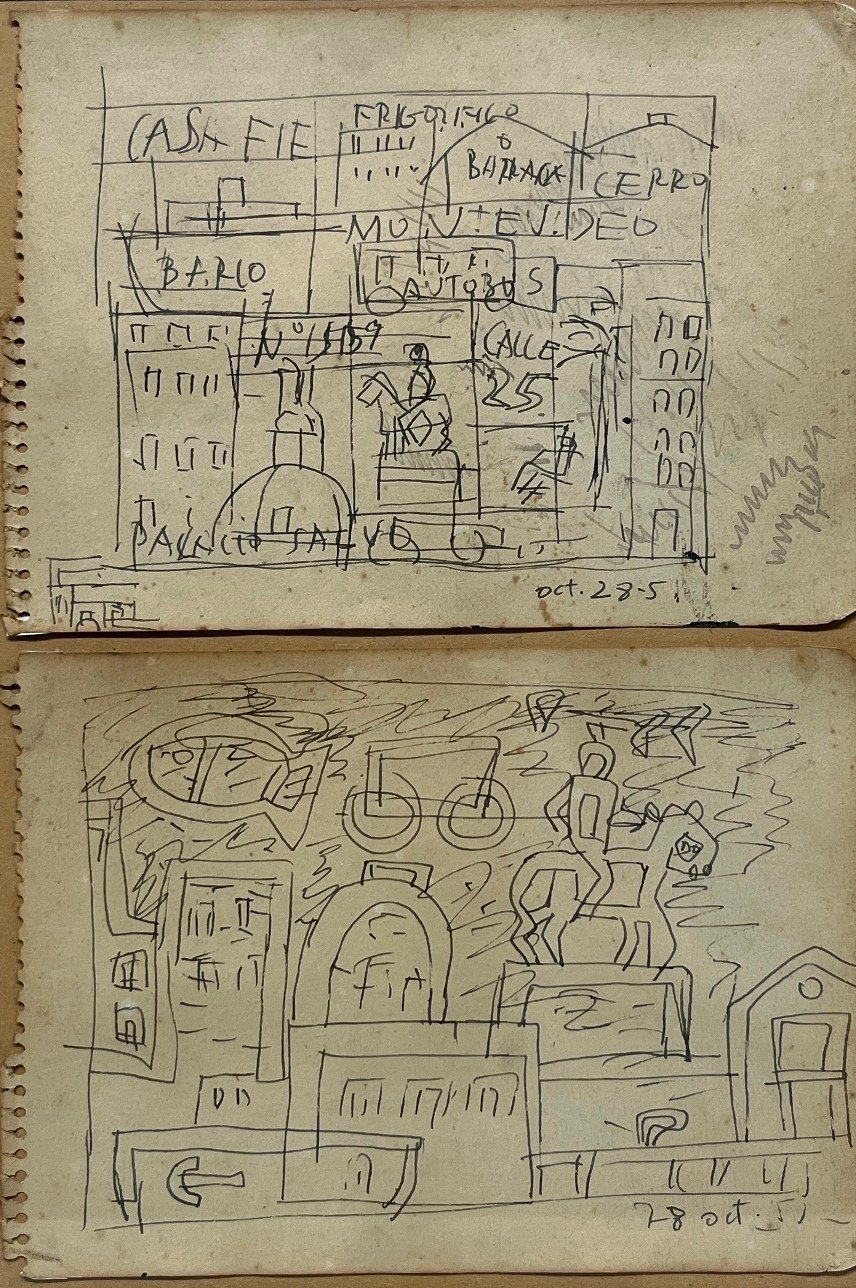 CASA FIE
FRIGORIFICO
O
BARRACA
CERRO
MONTEVIDEO
BARCO
AUTOBUS
Nº 15159
CALLE
25
PALACIO SALVO
oct. 28-51
28 oct. 51